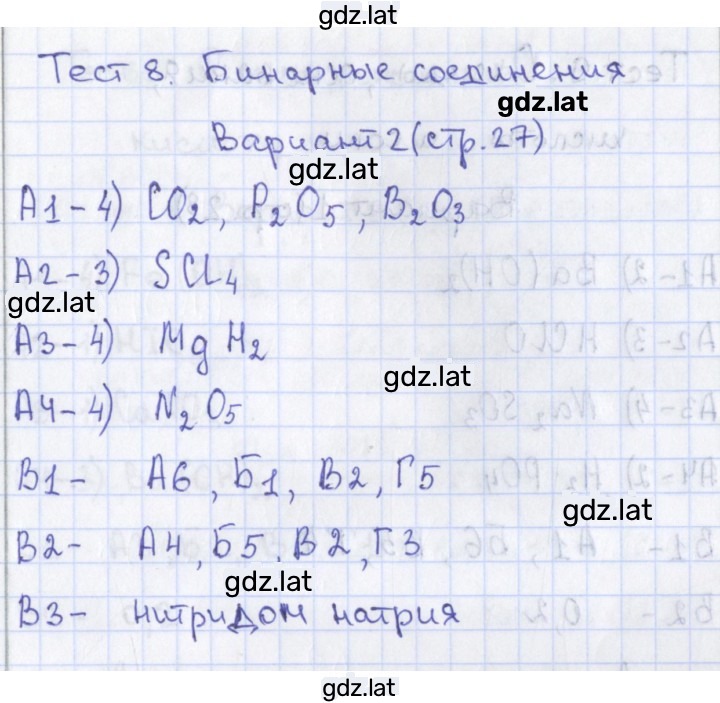 gdz.lat
Тест 8. Бинарные соединения
gdz.lat
Вариант 2 (стр. 27)
gdz.lat
А1 - 4) CO2, P2O5, B2O3
А2 - 3) SCl4
gdz.lat
А3 - 4) MgH2
gdz.lat
А4 - 4) N2O5
В1 - А6, Б1, В2, Г5
gdz.lat
В2 - А4, Б5. В2, Г3
gdz.lat
В3 - нитридом натрия
gdz.lat